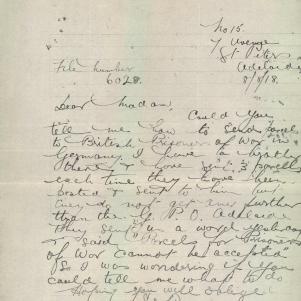 No 15.
7 Avenue
St Peters
Adelaide
8/8/18.
File number
6028.
Dear Madam,
Could you
tell me how to send parcels
to British Prisoners of War in
Germany I have a brother
there & have sent 3 parcels
each time they have been
posted & sent to him but
they do not get any further
than the G. P. O. Adelaide
They sent me a word yesterday
& said "Parcels for Prisoners
of War cannot be accepted"
So I was wondering if you
could tell me what to do
Hoping you will oblige